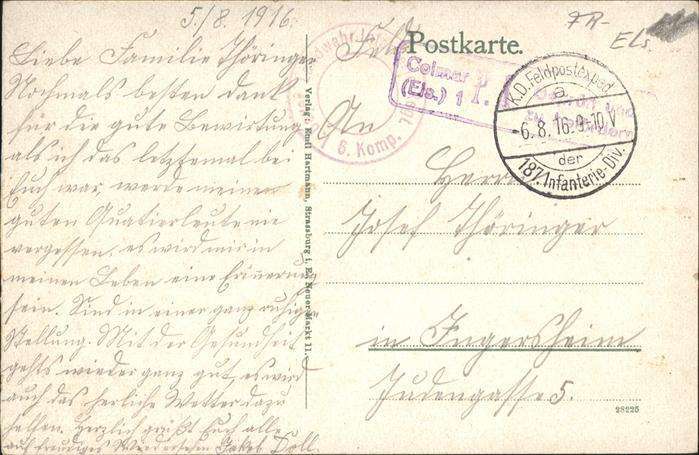 5./8. 1916.
Liebe Familie Thöringer
Nochmals besten Dank
für die gute Bewirtung
als ich das letztemal bei
Euch war, werde meine
guten Quatierleute nie
vergessen. es wird mir in
meinen Leben eine Erinnerung
sein. Sind in einer ganz ruhig
Stellung. Mit der Gesundheit
gehts wieder ganz gut, es wird
auch das herliche Wetter dazu
helfen. Herzlich grüßt Euch alle
auf freudiges Wiedersehen Jakob Doll.
Verlag: Emil Hartmann, Strassburg i. E., Neuer Markt 11.
Feldpostkarte.
FR-
Els.
Landwehr
6. Komp.
Colmar
(Els.) 1
P.
K.D. Feldpostexped.
a
-6.8.16.9-10V
der
187. Infanterie-Div.
An
Herrn
Josef Thöringer
in Ingersheim
Judengasse 5.
28225